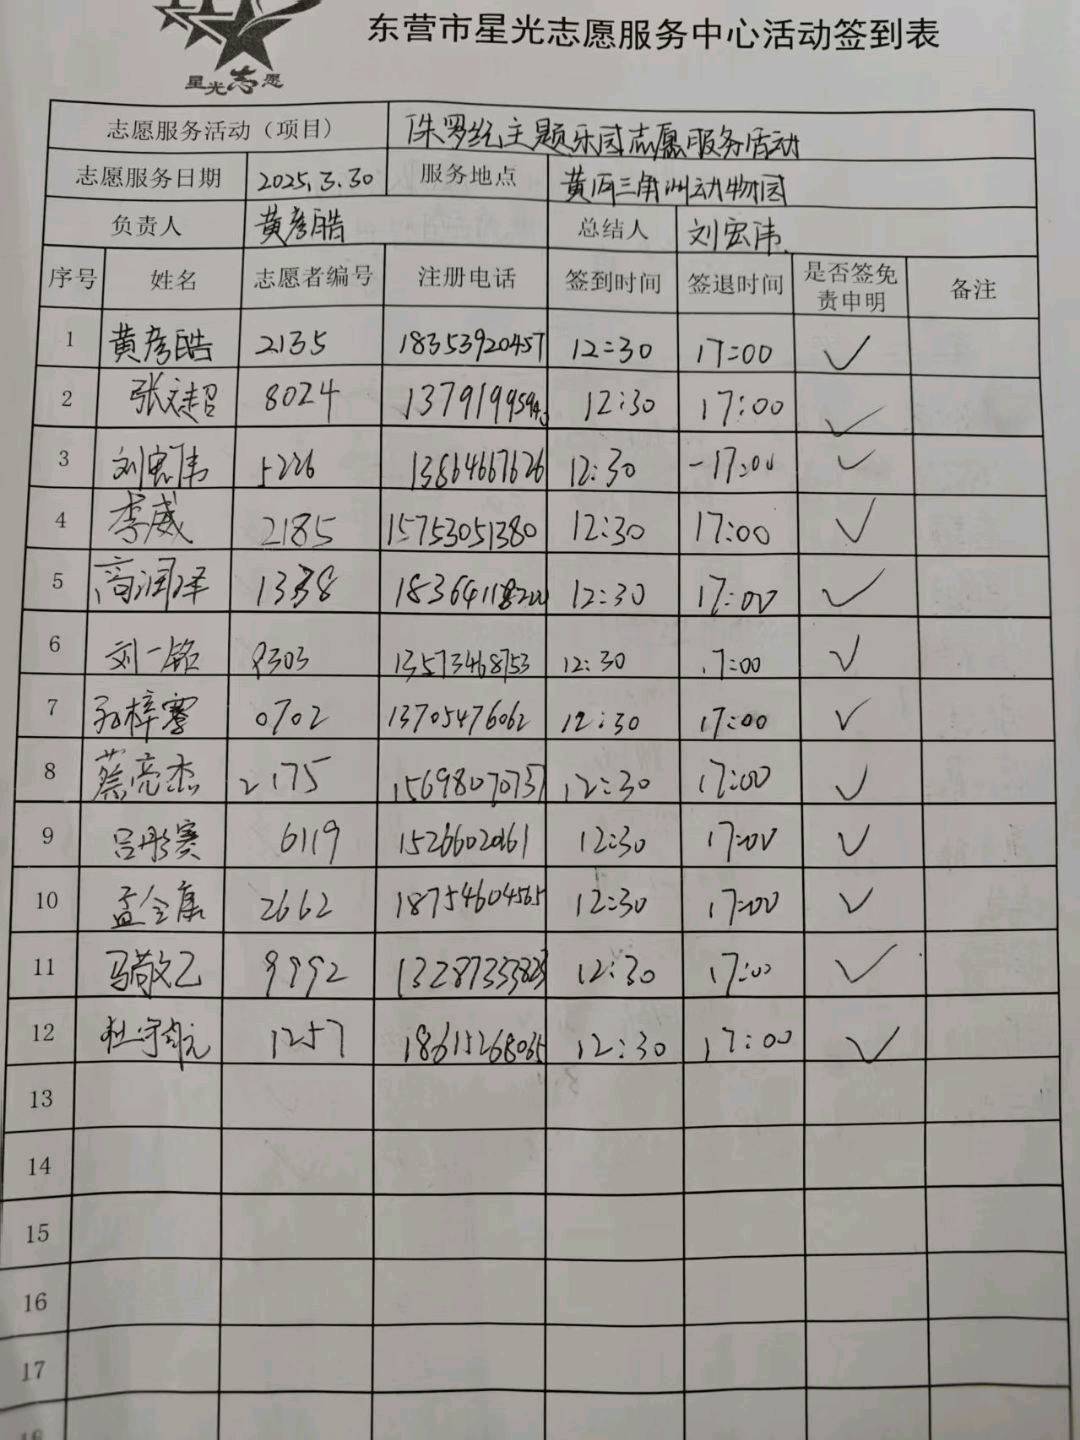 星光志愿
东营市星光志愿服务中心活动签到表
志愿服务活动（项目） 侏罗纪主题乐园志愿服务活动
志愿服务日期 2025.3.30 服务地点 黄河三角洲动物园
负责人 黄彦皓 总结人 刘宏伟
序号 姓名 志愿者编号 注册电话 签到时间 签退时间 是否签免责申明 备注
1 黄彦皓 2135 18353920457 12:30 17:00 ✓
2 张文超 8024 12:30 17:00 ✓
3 刘宏伟 5226 13864667626 12:30 17:00 ✓
4 李威 2185 15753051380 12:30 17:00 ✓
5 高润泽 1338 12:30 17:00 ✓
6 刘一铭 9303 13573468753 12:30 17:00 ✓
7 孙梓骞 0702 13705476062 12:30 17:00 ✓
8 蔡亮杰 2175 15698070757 12:30 17:00 ✓
9 吕彤赛 6119 12:30 17:00 ✓
10 孟令康 2662 18754604565 12:30 17:00 ✓
11 马敬文 9992 12:30 17:00 ✓
12 1257 18615268065 12:30 17:00 ✓
13
14
15
16
17